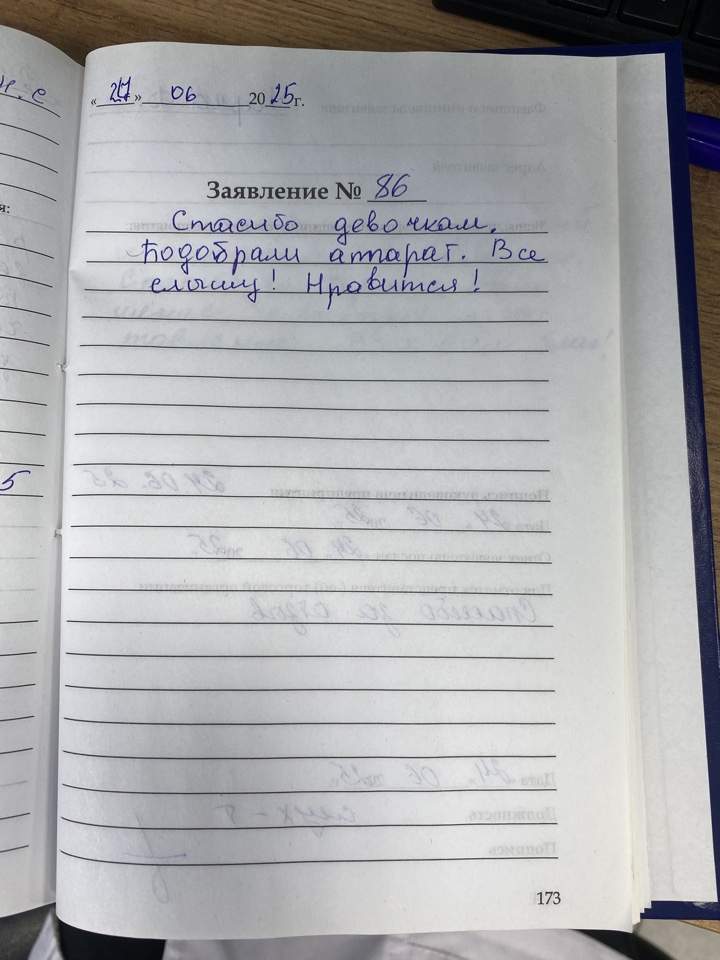 « 24 » 06 2025 г.
Заявление № 86
Спасибо девочкам.
Подобрали аппарат. Все
слышу! Нравится!
173